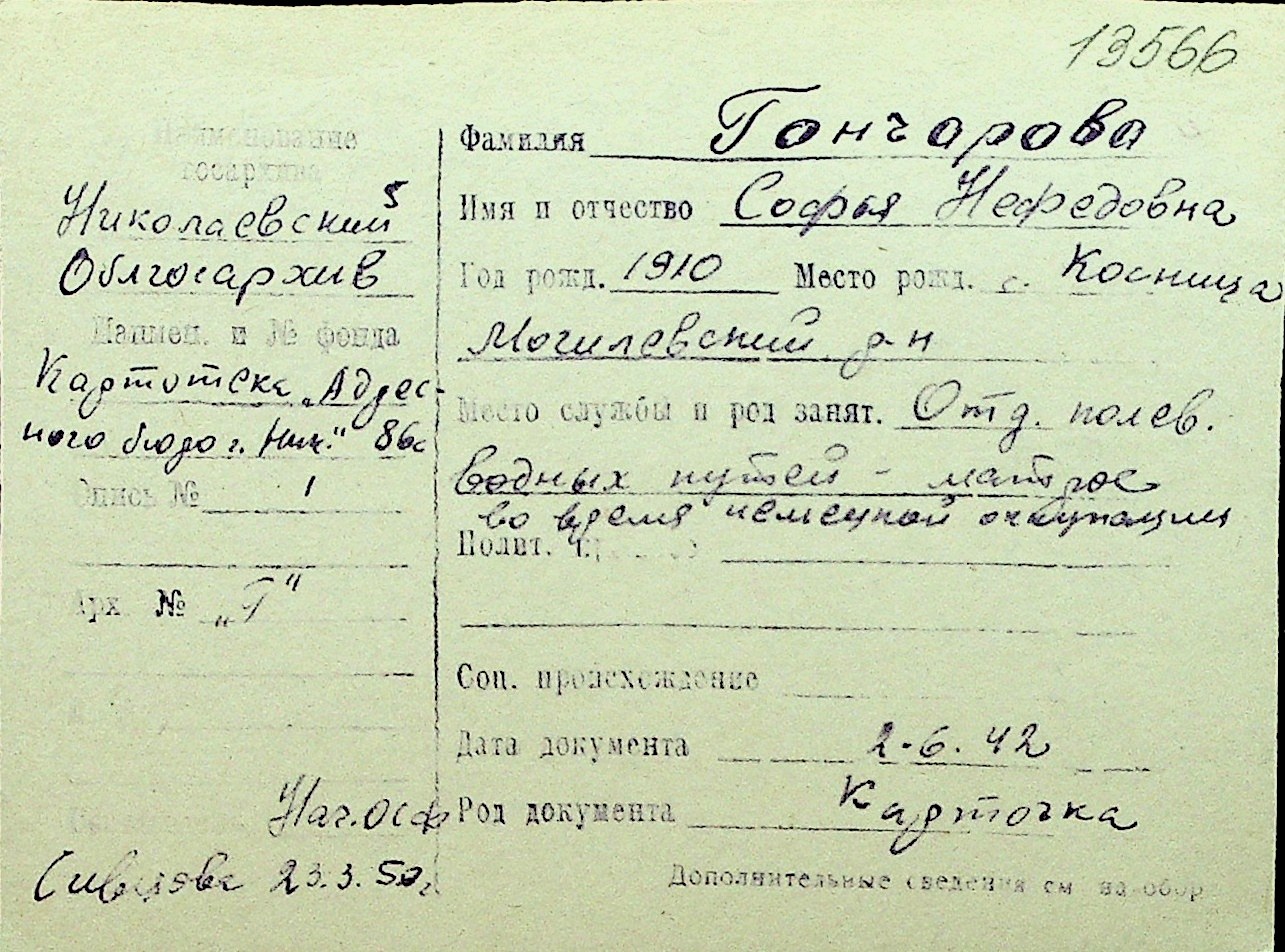 13566
Наименование
госархива
Николаевский
Облгосархив
Наимен. и № фонда
Картотека „Адрес-
ного бюро г. Ник." 86с
Опись № 1
Арх. № „Г"
Нач. ОСФ
23.3.50г.
Фамилия Гончарова
Имя и отчество Софья Нефедовна
Год рожд. 1910 Место рожд. с. Косница
Могилевский р-н
Место службы и род занят. Отд. полев.
водных путей - матрос
во время немецкой оккупации
Полит.
Соц. происхождение
Дата документа 2-6.42
Род документа Карточка
Дополнительные сведения см на обор